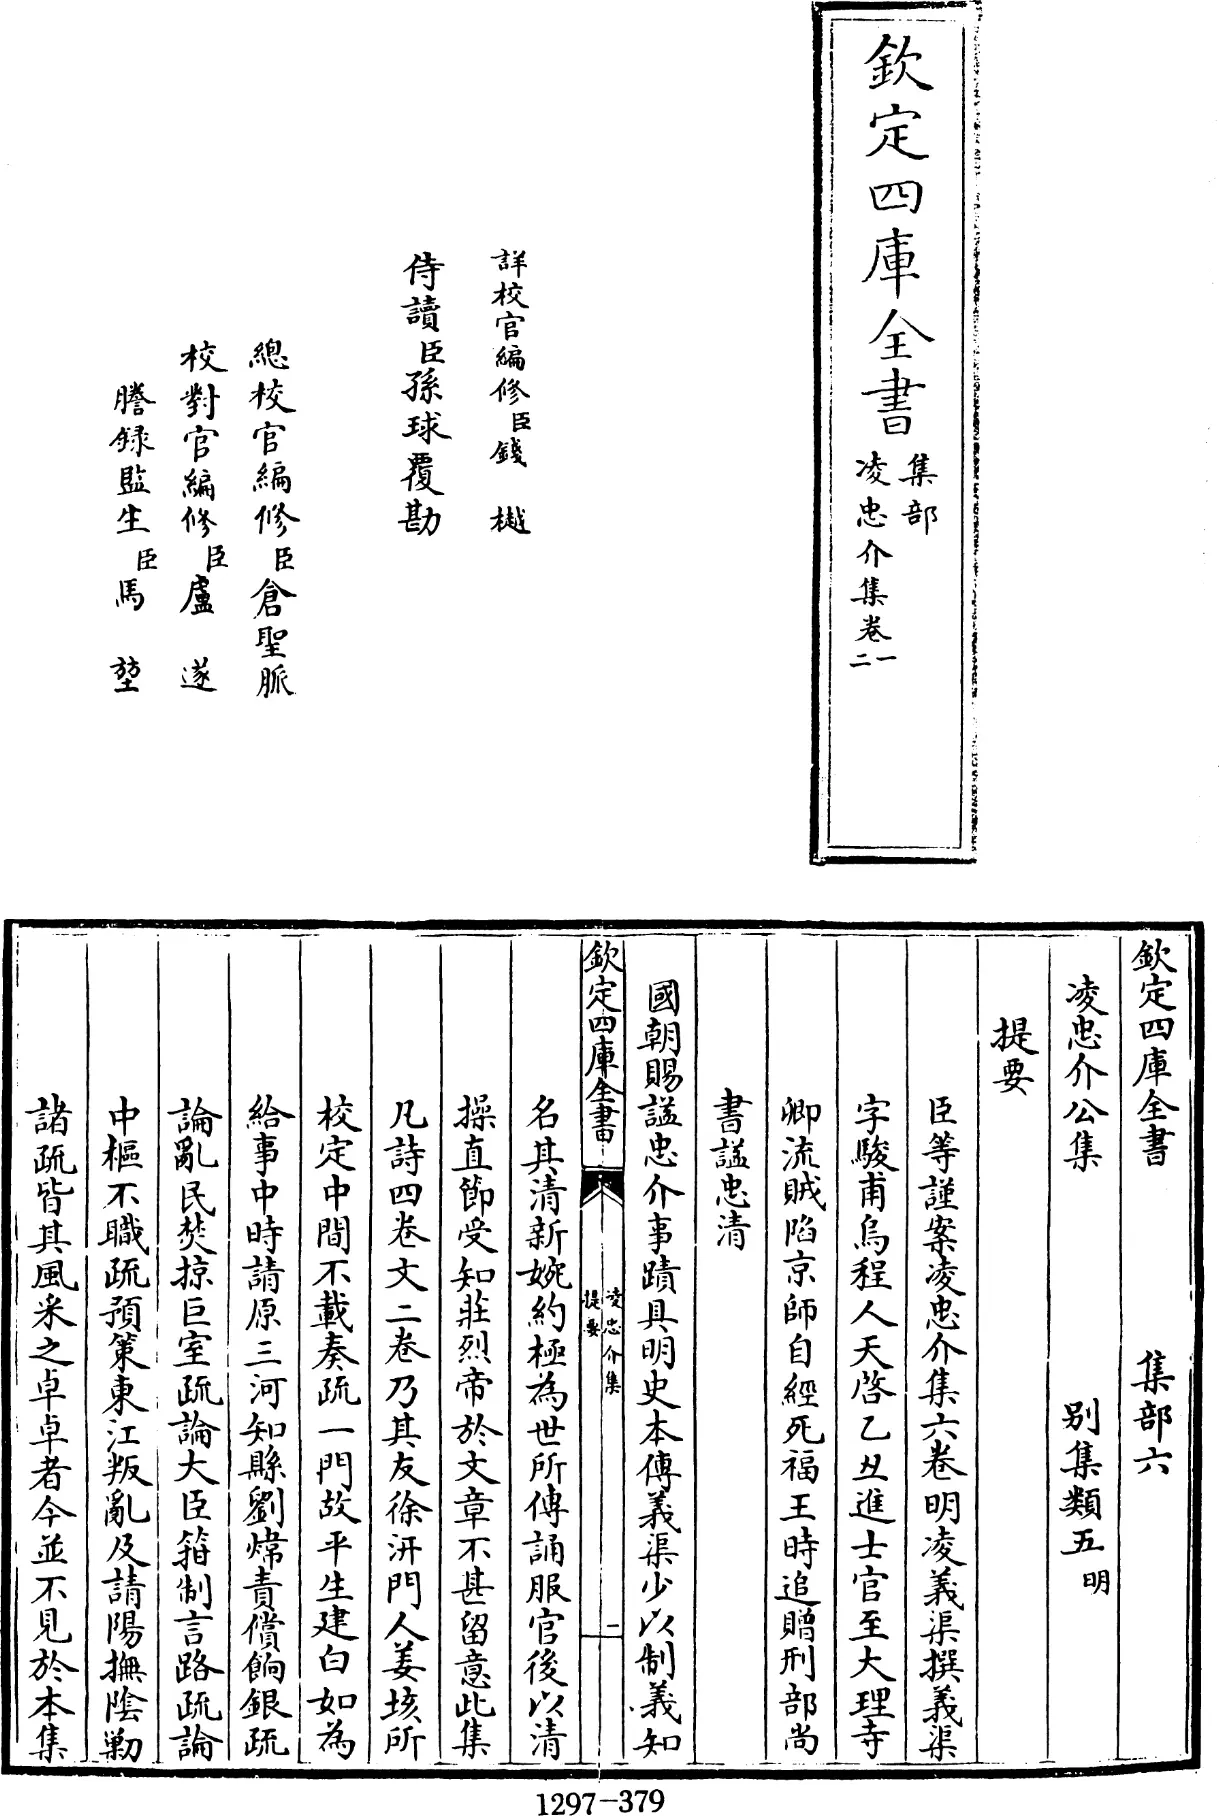 欽定四庫全書
集部
凌忠介集卷一
二
詳校官編修臣錢樾
侍讀臣孫球覆勘
總校官編修臣倉聖脈
校對官編修臣盧遂
謄録監生臣馬堃
欽定四庫全書 集部六
凌忠介公集 别集類五明
提要
臣等謹案凌忠介集六卷明凌義渠撰義渠
字駿甫烏程人天啓乙丑進士官至大理寺
卿流賊陷京師自經死福王時追贈刑部尚
書諡忠清
國朝賜諡忠介事蹟具明史本傳義渠少以制義知
欽定四庫全書
凌忠介集
提要
二
名其清新婉約極為世所傳誦服官後以清
操直節受知莊烈帝於文章不甚留意此集
凡詩四卷文二卷乃其友徐汧門人姜垓所
校定中間不載奏疏一門故平生建白如為
給事中時請原三河知縣劉煒責償餉銀疏
論亂民焚掠巨室疏論大臣箝制言路疏論
中樞不職疏預策東江叛亂及請陽撫陰勦
諸疏皆其風采之卓卓者今並不見於本集
1297-379